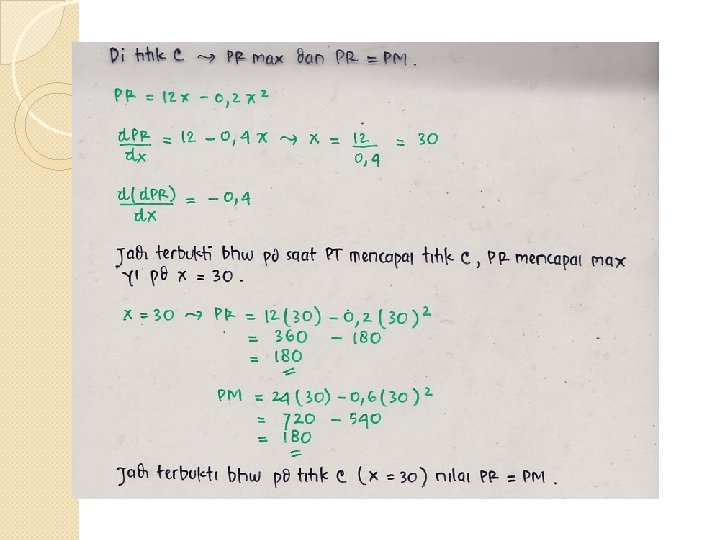 Di titik C ⤳ PR max dan PR = PM.
PR = 12x - 0,2x²
dPR/dx = 12 - 0,4x ⤳ x = 12/0,4 = 30
d(dPR)/dx = - 0,4
Jadi terbukti bhw pd saat PT mencapai titik C, PR mencapai max
yi pd x = 30.
x = 30 ⤳ PR = 12(30) - 0,2(30)²
= 360 - 180
= 180
PM = 24(30) - 0,6(30)²
= 720 - 540
= 180
Jadi terbukti bhw pd titik C (x = 30) nilai PR = PM.